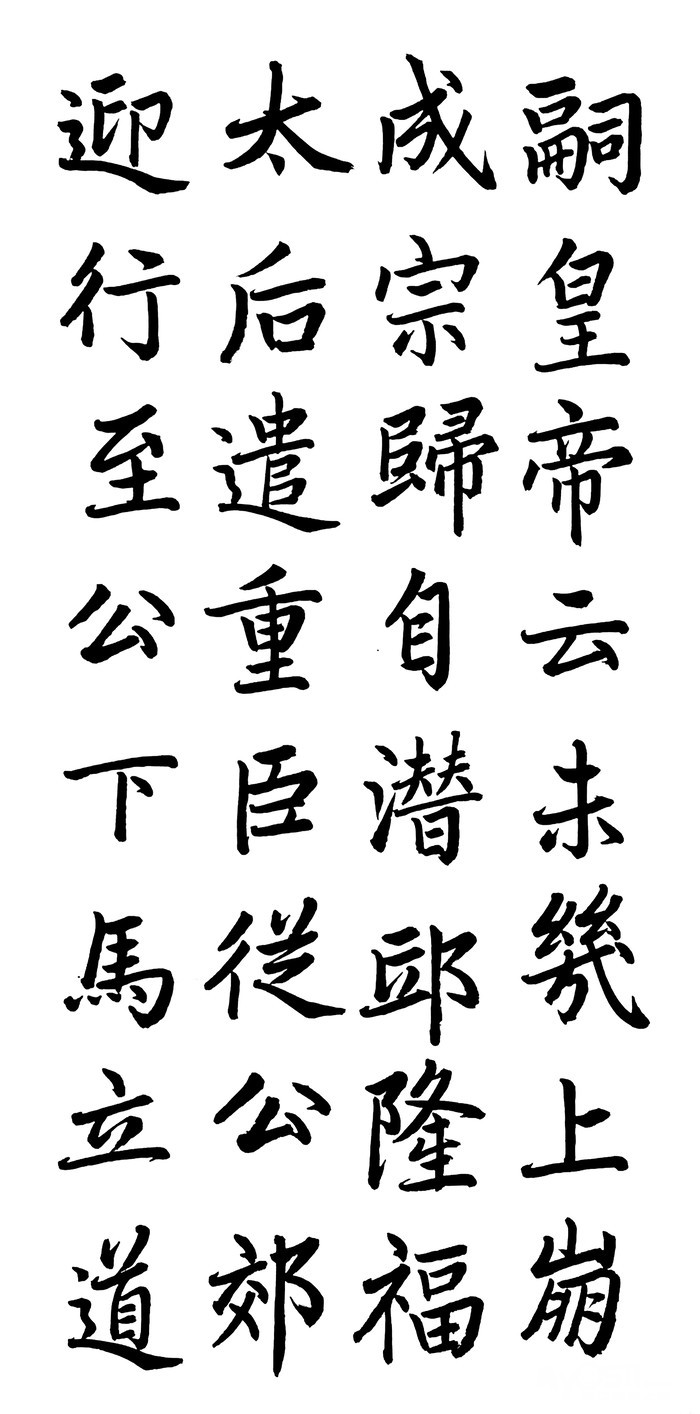 嗣皇帝云未幾上崩
成宗歸自潛邸隆福
太后遣重臣従公郊
迎行至公下馬立道